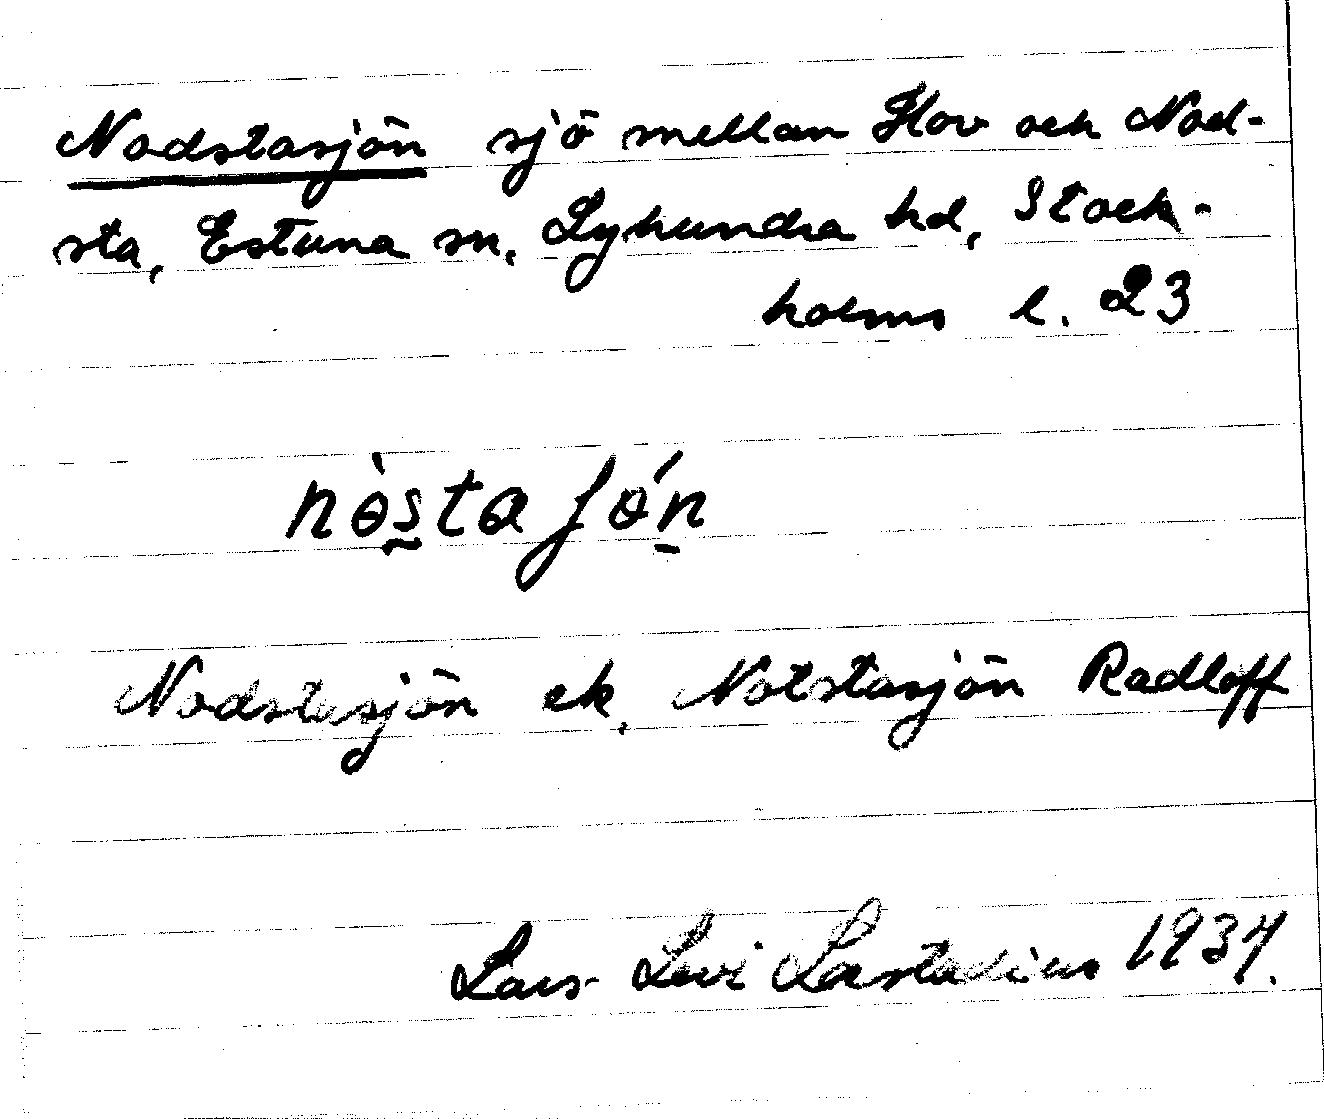 Nodstasjön sjö mellan Hov och Nod-
sta, Estuna sn. Lyhundra hd, Stock-
holms l. 23
nòsta ʃón
Nodstasjön ek. Notstasjön Radloff
Lars Levi Læstadius 1934.